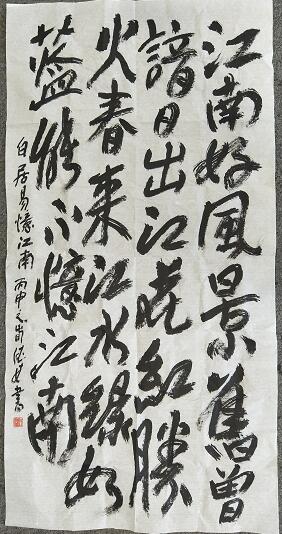 江南好風景舊曾
諳日出江花紅勝
火春來江水綠如
藍能不憶江南
白居易憶江南 丙申之 書